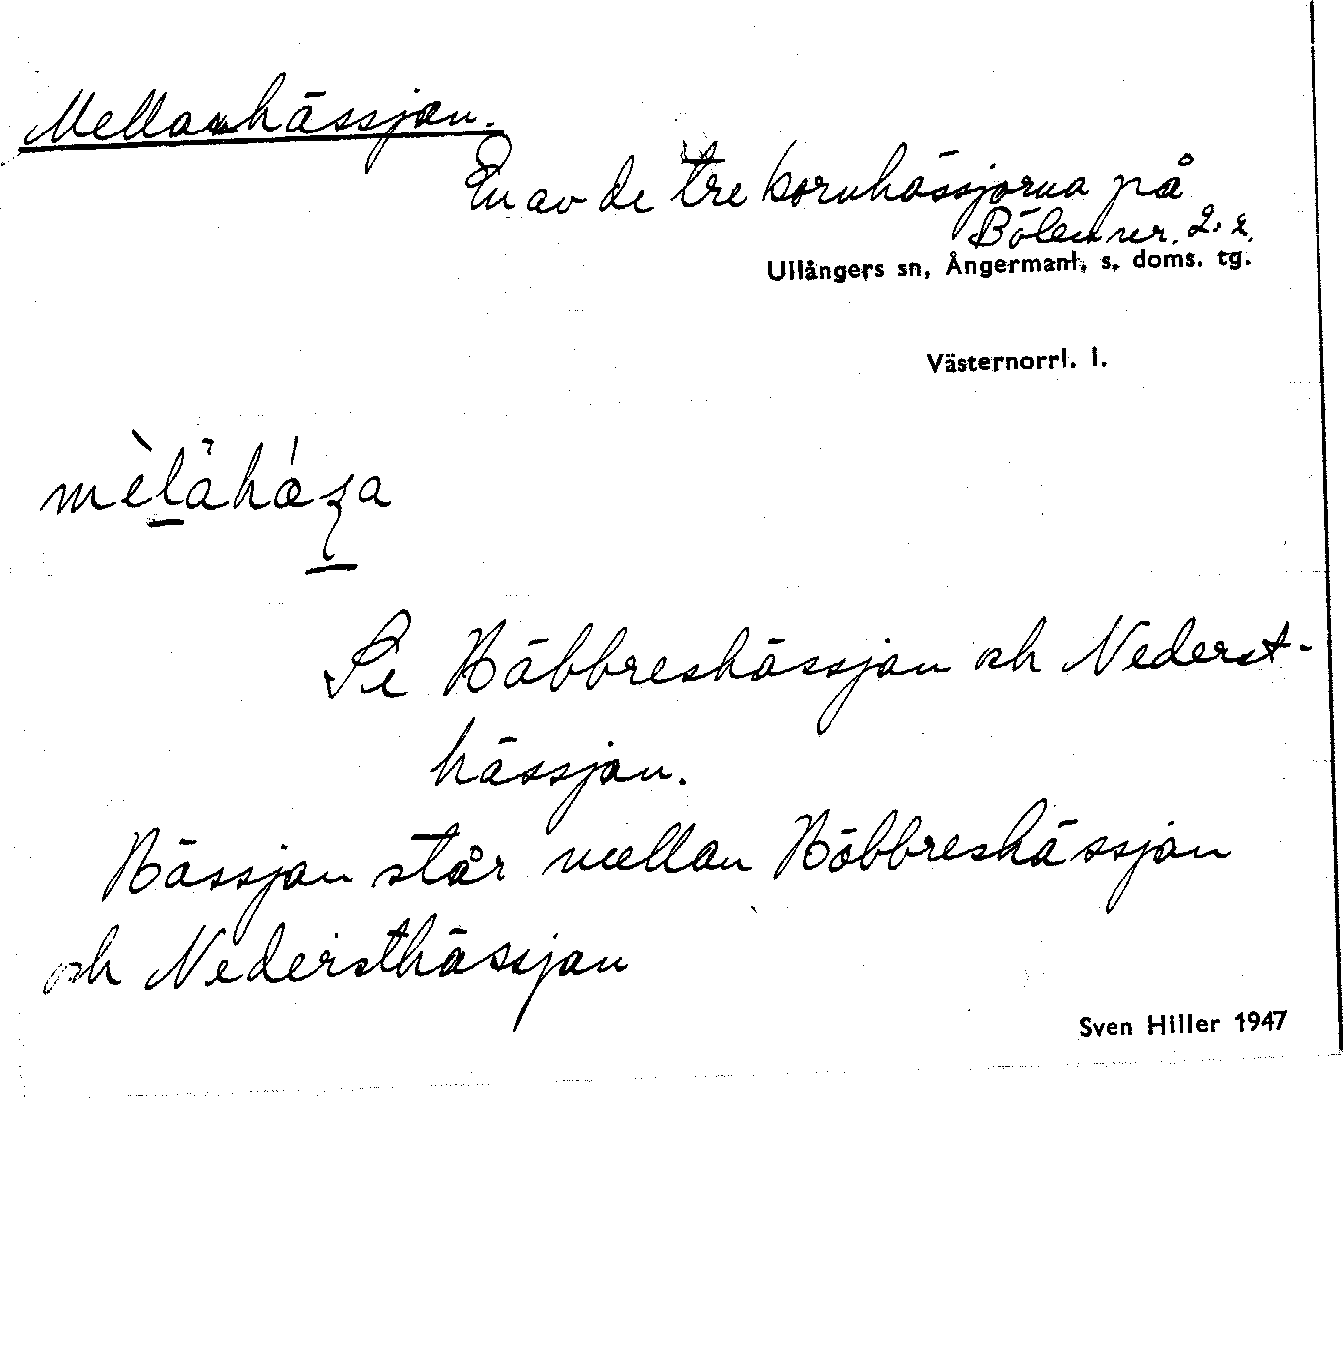 Mellanhässjan.
En av de tre kornhässjorna på
Bölen nr. 2.2.
Ullångers sn, Ångermanl. s. doms. tg.
Västernorrl. l.
Se Häbbreshässjan och Nederst-
hässjan.
Hässjan står mellan Häbbreshässjan
och Nedersthässjan
Sven Hiller 1947